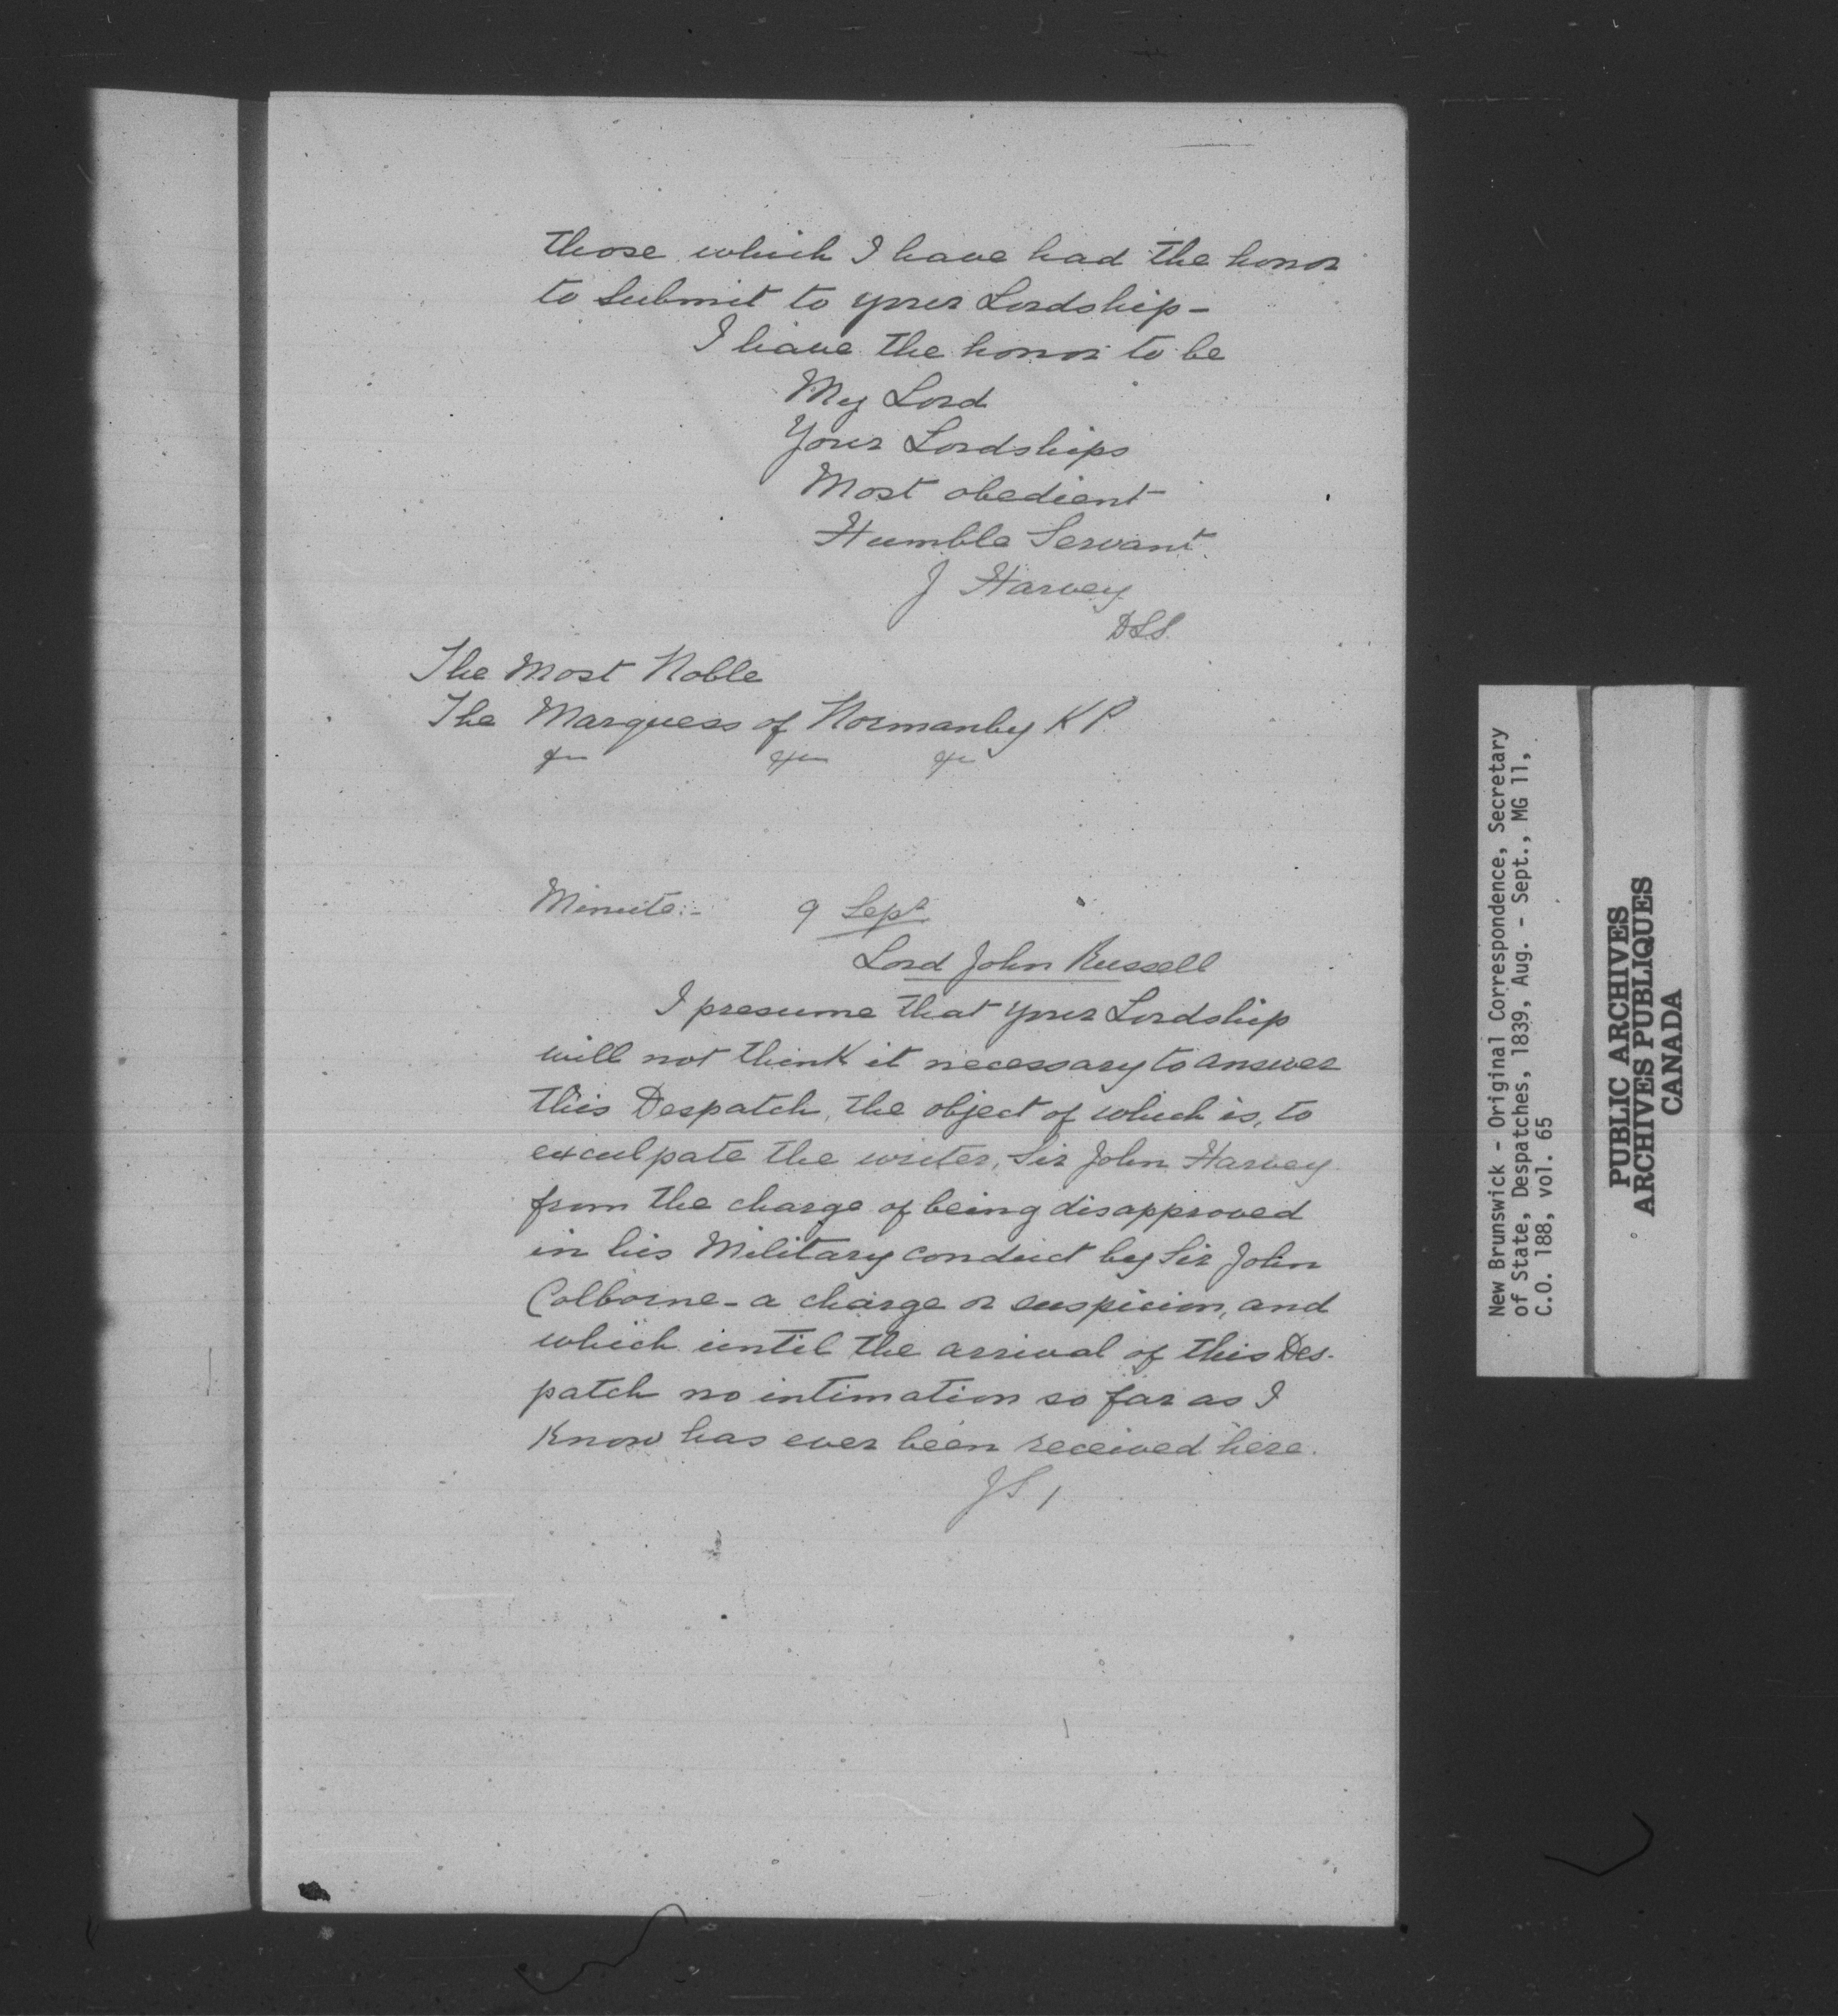 those which I have had the honor
to submit to your Lordship -
I have the honor to be
My Lord
Your Lordships
Most obedient
Humble Servant.
J Harvey
The Most Noble
The Marquess of Normanby K P.
&c &c &c
Minute:- 9 Sept
Lord John Russell
I presume that your Lordship
will not think it necessary to answer
this Despatch, the object of which is, to
exculpate the writer, Sir John Harvey
from the charge of being disapproved
in his Military conduct by Sir John
Colborne - a charge or suspicion, and
which until the arrival of this Des-
patch no intimation so far as I
Know has ever been received here.
JS /
New Brunswick - Original Correspondence, Secretary
of State, Despatches, 1839, Aug. - Sept., MG 11,
C.O. 188, vol. 65
PUBLIC ARCHIVES
ARCHIVES PUBLIQUES
CANADA